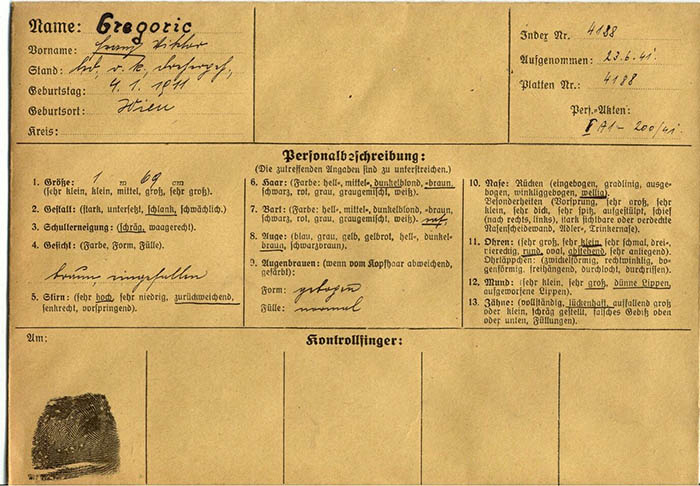 Name: Gregoric
Vorname: Franz Viktor
Stand: led., r. k.,
Geburtstag: 4. 1. 1911
Geburtsort: Wien
Kreis:
Index Nr. 4188
Aufgenommen: 23.6.41.
Platten Nr.: 4188
Pers.-Akten:
I A1- 200/41.
Personalbeschreibung:
(Die zutreffenden Angaben sind zu unterstreichen.)
1. Größe: 1 m 69 cm
(sehr klein, klein, mittel, groß, sehr groß).
2. Gestalt: (stark, untersetzt, schlank, schwächlich).
3. Schulterneigung: (schräg, waagerecht).
4. Gesicht: (Farbe, Form, Fülle).
braun, eingefallen
5. Stirn: (sehr hoch, sehr niedrig, zurückweichend,
senkrecht, vorspringend).
6. Haar: (Farbe: hell-, mittel-, dunkelblond, -braun,
schwarz, rot, grau, graugemischt, weiß).
7. Bart: (Farbe: hell-, mittel-, dunkelblond, -braun,
schwarz, rot, grau, graugemischt, weiß).
8. Auge: (blau, grau, gelb, gelbrot, hell-, dunkel-
braun, schwarzbraun).
9. Augenbrauen: (wenn vom Kopfhaar abweichend,
gefärbt):
Form: gebogen
Fülle: normal
10. Nase: Rücken (eingebogen, gradlinig, ausge-
bogen, winkliggebogen, wellig).
Besonderheiten (Vorsprung, sehr groß, sehr
klein, sehr dick, sehr spitz, aufgestülpt, schief
(nach rechts, links), stark sichtbare oder verdeckte
Nasenscheidewand, Adler-, Trinkernase).
11. Ohren: (sehr groß, sehr klein, sehr schmal, drei-,
viereckig, rund, oval, abstehend, sehr anliegend).
Ohrläppchen: (zwickelförmig, rechtwinklig, bo-
genförmig, freihängend, durchlocht, durchrissen).
12. Mund: (sehr klein, sehr groß, dünne Lippen,
aufgeworfene Lippen).
13. Zähne: (vollständig, lückenhaft, auffallend groß
oder klein, schräg gestellt, falsches Gebiß oben
oder unten, Füllungen).
Am:
Kontrollfinger: